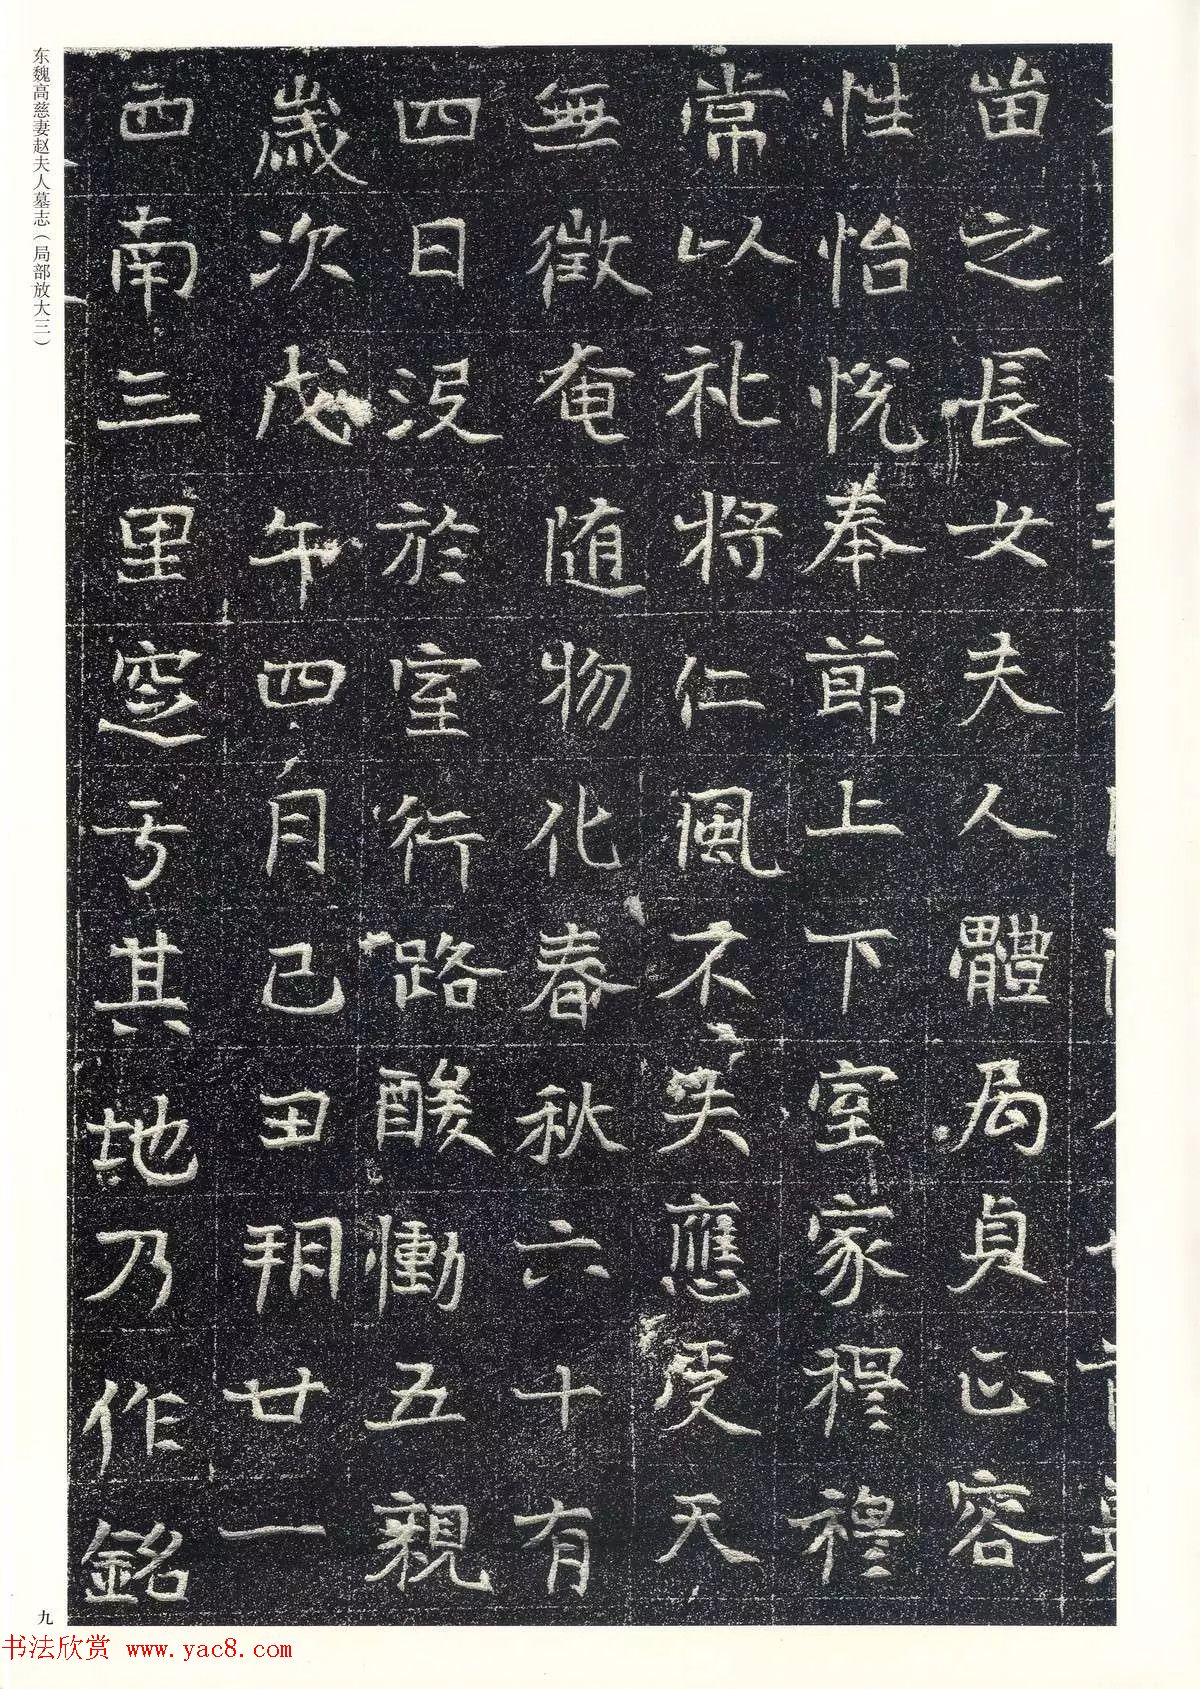 苗之長女夫人體局貞正容
性怡悦奉節上下室家穆穆
常以礼將仁風不失應受天
無徵奄随物化春秋六十有
四日没於室行路酸慟五親
歲次戊午四月己丑朔廿一
西南三里窆于其地乃作銘
东魏高慈妻赵夫人墓志（局部放大三）
九
书法欣赏 www.yac8.com